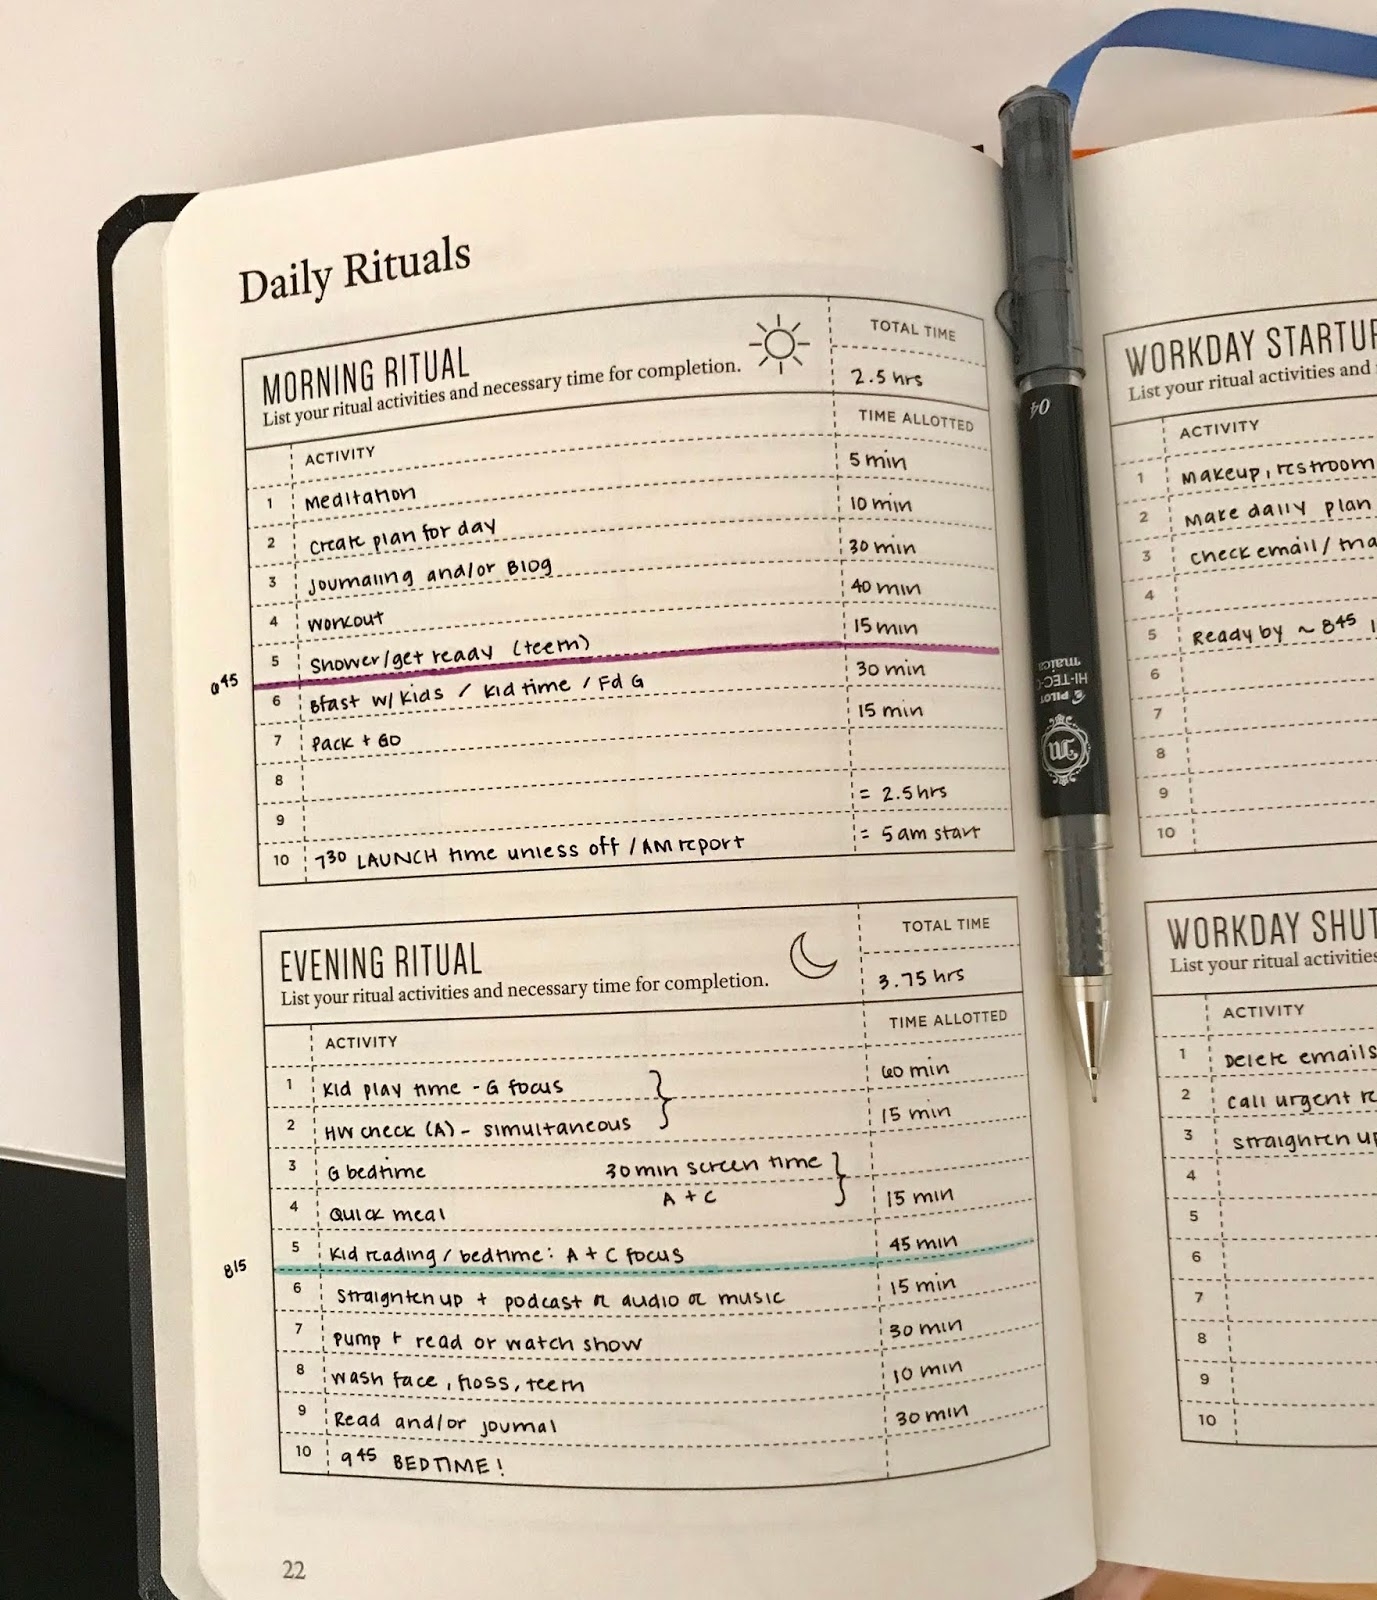 Daily Rituals
MORNING RITUAL
List your ritual activities and necessary time for completion.
TOTAL TIME
2.5 hrs
ACTIVITY TIME ALLOTTED
1 Meditation 5 min
2 Create plan for day 10 min
3 Journaling and/or Blog 30 min
4 Workout 40 min
5 Shower/get ready (teeth) 15 min
645
6 Bfast w/ Kids / Kid time / Fd G 30 min
7 Pack + Go 15 min
8
9 = 2.5 hrs
10 730 LAUNCH time unless off / AM report = 5am start
EVENING RITUAL
List your ritual activities and necessary time for completion.
TOTAL TIME
3.75 hrs
ACTIVITY TIME ALLOTTED
1 Kid play time - G focus 60 min
2 HW check (A) - simultaneous 15 min
3 G bedtime 30 min screen time
4 Quick meal A + C 15 min
5 Kid reading / bedtime: A + C focus 45 min
815
6 Straighten up + podcast or audio or music 15 min
7 Pump + read or watch show 30 min
8 Wash face, floss, teeth 10 min
9 Read and/or journal 30 min
10 945 BEDTIME!
22
04
PILOT
HI-TEC-C
maica
WORKDAY STARTUP
List your ritual activities and
ACTIVITY
1 Makeup, restroom
2 Make daily plan
3 Check email/
4
5 Ready by ~ 845
6
7
8
9
10
WORKDAY SHUT
List your ritual activities
ACTIVITY
1 Delete emails
2 Call urgent
3 Straighten up
4
5
6
7
8
9
10